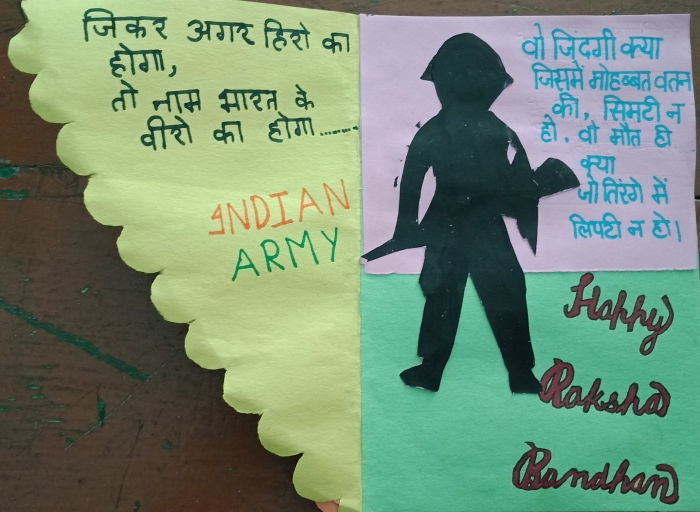 जिकर अगर हिरो का
होगा,
तो नाम भारत के
वीरो का होगा........
INDIAN
ARMY
वो जिंदगी क्या
जिसमें मोहब्बत वतन
की, सिमटी न
हो. वो मौत ही
क्या
जो तिरंगे में
लिपटी न हो।
Happy
Raksha
Bandhan